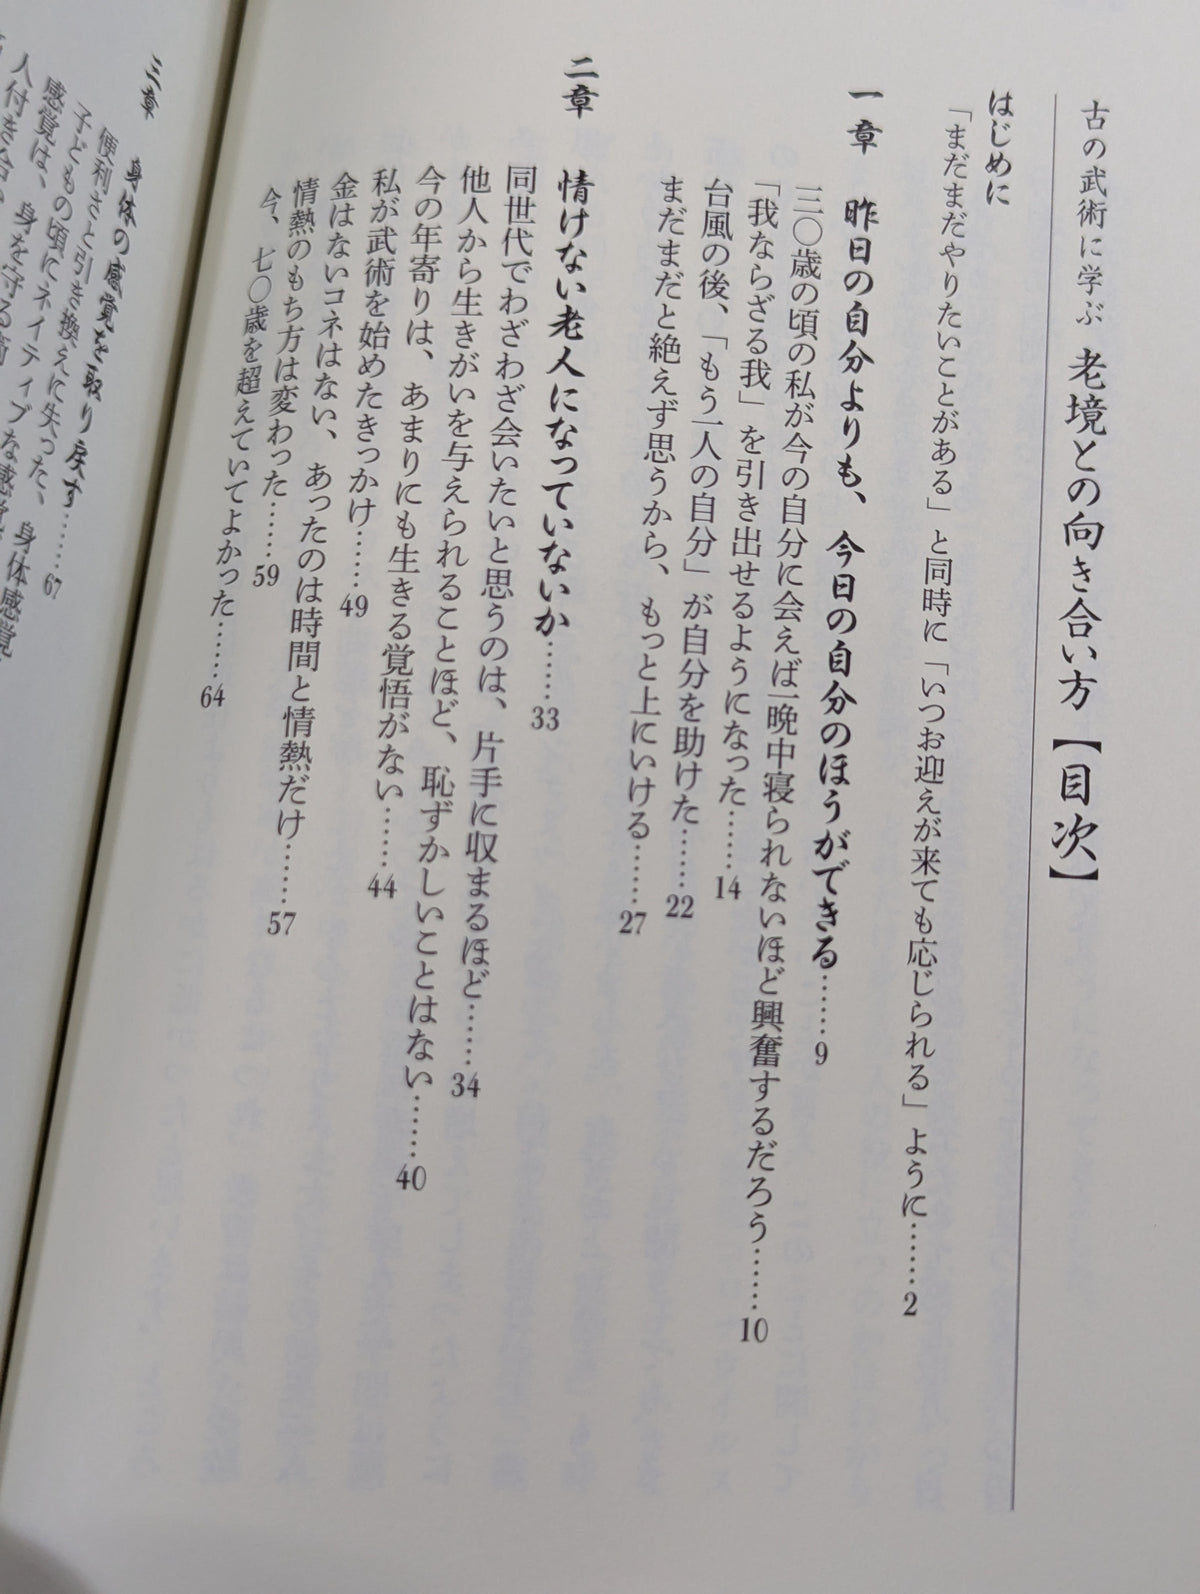 古の武術に学ぶ 老境との向き合い方【目次】
はじめに
「まだまだやりたいことがある」と同時に「いつお迎えが来ても応じられる」ように……2
一章 昨日の自分よりも、今日の自分のほうができる……9
三〇歳の頃の私が今の自分に会えば一晩中寝られないほど興奮するだろう……10
「我ならざる我」を引き出せるようになった……14
台風の後、「もう一人の自分」が自分を助けた……22
まだまだと絶えず思うから、もっと上にいける……27
二章 情けない老人になっていないか……33
同世代でわざわざ会いたいと思うのは、片手に収まるほど……34
他人から生きがいを与えられることほど、恥ずかしいことはない……40
今の年寄りは、あまりにも生きる覚悟がない……44
私が武術を始めたきっかけ……49
金はないコネはない、あったのは時間と情熱だけ……57
情熱のもち方は変わった……59
今、七〇歳を超えていてよかった……64
三章 身体の感覚を取り戻す……67
便利さと引き換えに失った、身体感覚
子どもの頃にネイティブな感覚
感覚は、身を守る
人付き合